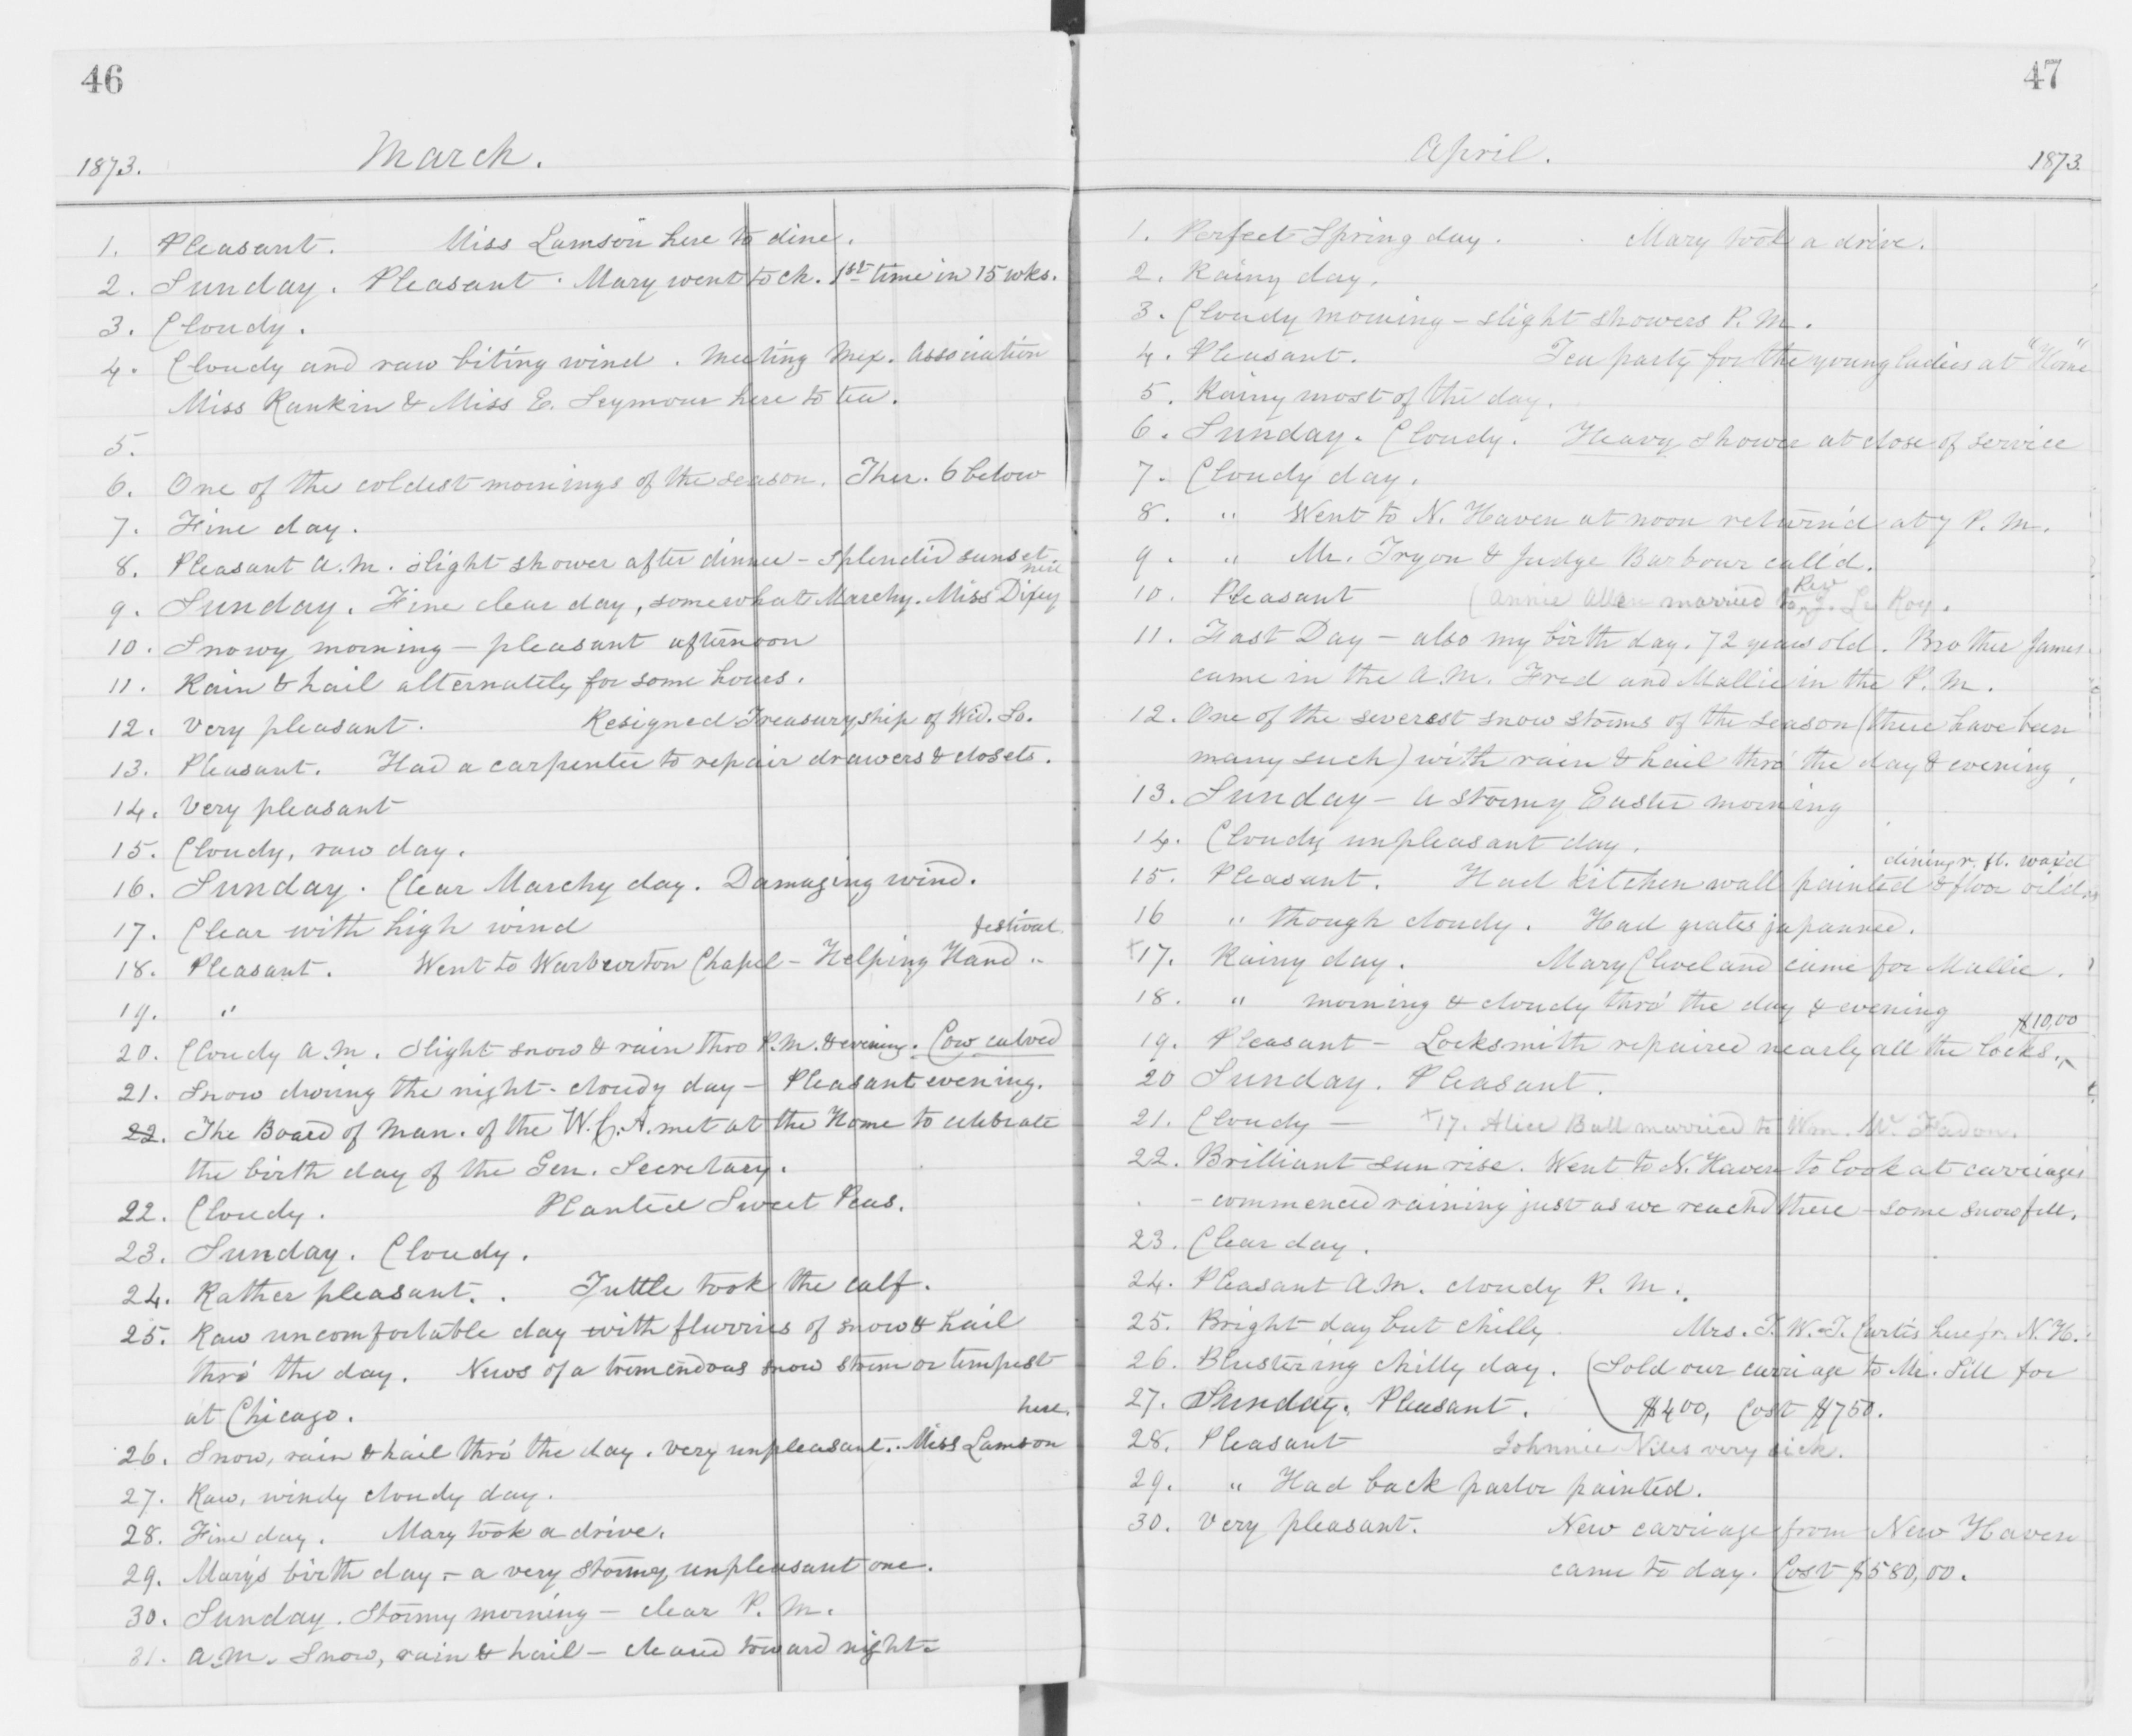 46
March.
1873.
1. Pleasant. Miss Lamson here to dine.
2. Sunday. Pleasant. Mary went to ch. 1st time in 15 wks.
3. Cloudy.
4. Cloudy and raw biting wind. Meeting Mex. Association
Miss Rankin & Miss E. Seymour here to tea.
5.
6. One of the coldest mornings of the season. Ther. 6 below
7. Fine day.
8. Pleasant A.M. slight shower after dinner - splendid sunset
9. Sunday. Fine clear day, somewhat Marchy. Miss
10. Snowy morning - pleasant afternoon
11. Rain & hail alternately for some hours.
12. Very pleasant. Resigned Treasuryship of Wid. So.
13. Pleasant. Had a carpenter to repair drawers & closets.
14. Very pleasant
15. Cloudy, raw day.
16. Sunday. Clear Marchy day. Damaging wind.
17. Clear with high wind
festival.
18. Pleasant. Went to Warburton Chapel - Helping Hand "
19. "
20. Cloudy A.M. slight snow & rain thro P.M. & evening. Cow calved
21. Snow during the night - cloudy day - Pleasant evening.
22. The Board of Man. of the W.C.A. met at the Home to celebrate
the birth day of the Gen. Secretary.
22. Cloudy. Planted Sweet Peas.
23. Sunday. Cloudy.
24. Rather pleasant. Tuttle took the calf.
25. Raw uncomfortable day with flurries of snow & hail
thro' the day. News of a tremendous snow storm or tempest
at Chicago.
here.
26. Snow, rain & hail thro' the day. Very unpleasant. Miss Lamson
27. Raw, windy cloudy day.
28. Fine day. Mary took a drive.
29. Mary's birth day - a very stormy, unpleasant one.
30. Sunday. Stormy morning - clear P.M.
31. A.M. Snow, rain & hail - cleared toward night.
47
April.
1873.
1. Perfect Spring day. Mary took a drive.
2. Rainy day.
3. Cloudy morning - slight showers P.M.
4. Pleasant. Tea party for the young ladies at "Home"
5. Rainy most of the day.
6. Sunday. Cloudy. Heavy shower at close of service
7. Cloudy day.
8. " Went to N. Haven at noon return'd at 7 P.M.
9. " Mr. Tryon & Judge Barbour call'd.
Rev
10. Pleasant (Annie Allen married to ^ J. Le Roy.
11. Fast Day - also my birth day. 72 years old. Brother James
came in the A.M. Fred and Mallie in the P.M.
12. One of the severest snow storms of the season (there have been
many such) with rain & hail thro' the day & evening.
13. Sunday - A stormy Easter morning
14. Cloudy unpleasant day.
dining r. fl. wax'd
15. Pleasant. Had kitchen wall painted & floor oil'd
16 " though cloudy. Had grates japanned.
+17. Rainy day. Mary Cleveland came for Mallie.
18. " morning & cloudy thro' the day & evening
$10,00
19. Pleasant - Locksmith repaired nearly all the locks. ^
20 Sunday. Pleasant.
21. Cloudy - +17. Alice Ball married to Wm. Mc Fadon.
22. Brilliant sun rise. Went to N. Haven to look at carriages
- commenced raining just as we reach'd there - some snow fell.
23. Clear day.
24. Pleasant A.M. cloudy P.M.
25. Bright day but chilly. Mrs. T. W. T. Curtis here fr. N. H.
26. Blustering chilly day. (Sold our carriage to Mr. Sill for
27. Sunday. Pleasant. $400, Cost $750.
28. Pleasant Johnnie Niles very sick.
29. " Had back parlor painted.
30. Very pleasant. New carriage from New Haven
came to day. Cost $580,00.